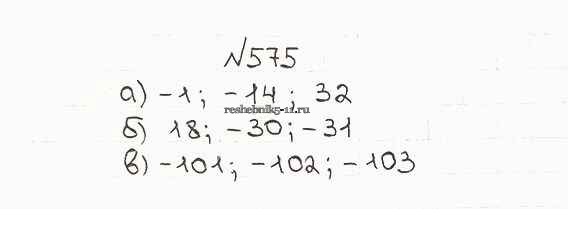 №575
а) -1; -14; 32
reshebnik5-11.ru
б) 18; -30; -31
в) -101; -102; -103